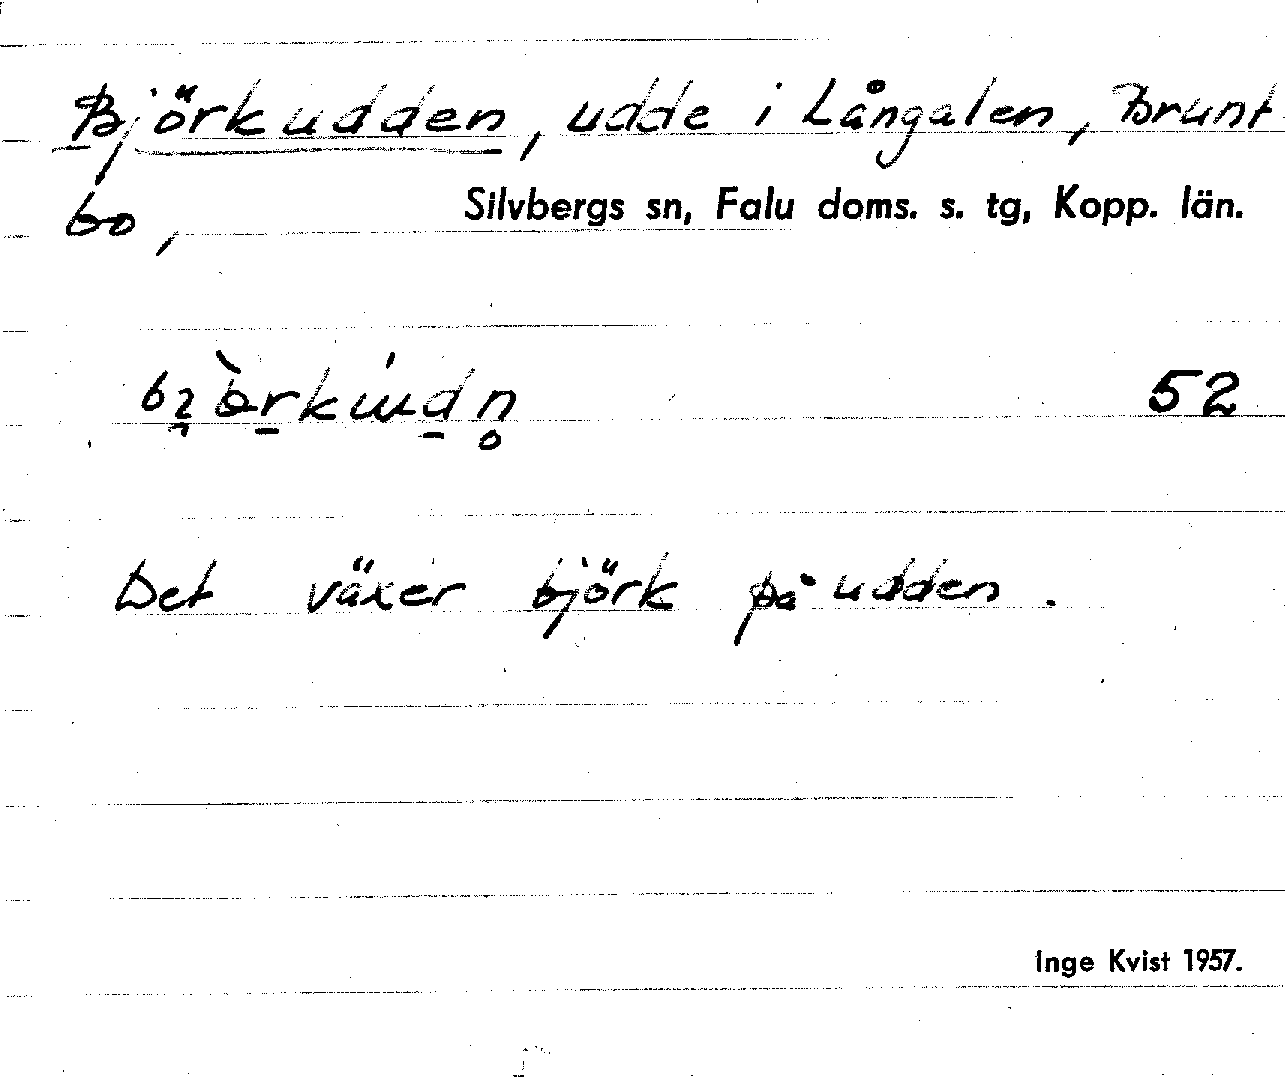 Björkudden, udde i Långalen, Brunt
bo,
Silvbergs sn, Falu doms. s. tg, Kopp. län.
52
Det växer björk på udden.
Inge Kvist 1957.